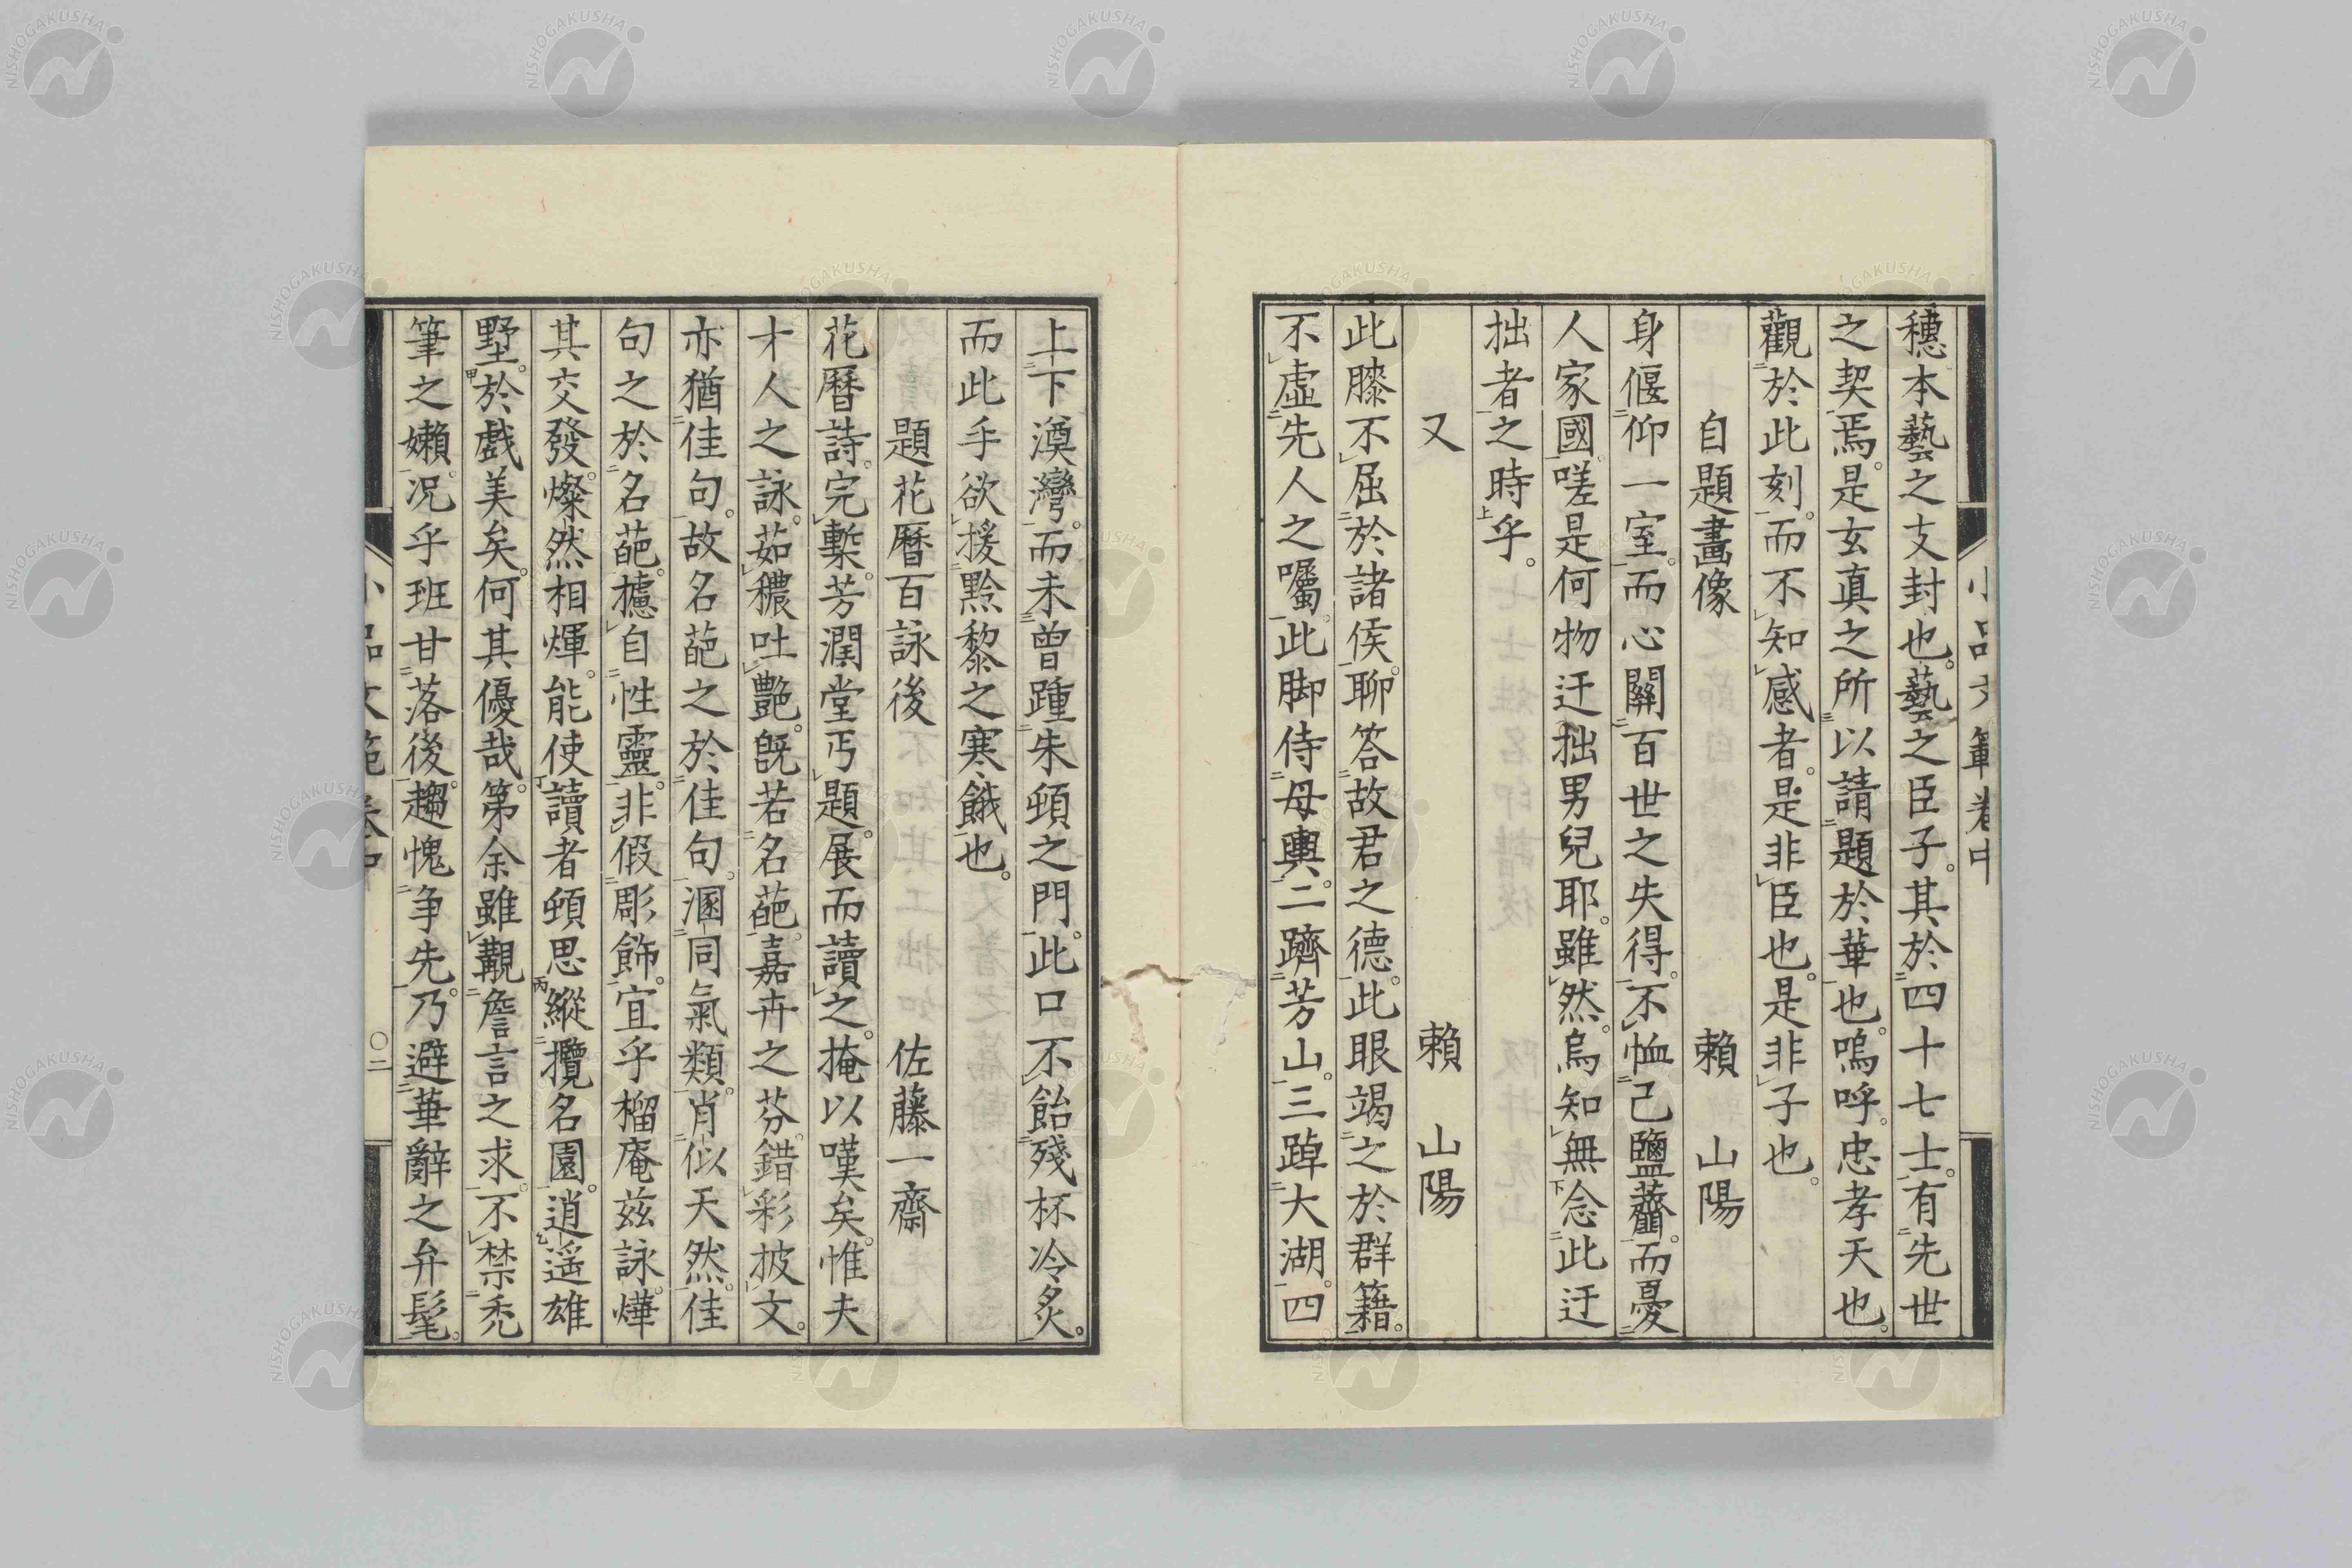 小品文範卷中
穗本藝之支封也。藝之臣子。其於四十七士。有先世
之契焉。是玄真之所以請題於華也。嗚呼。忠孝天也。
觀於此刻。而不知感者。是非臣也。是非子也。
自題畫像　賴山陽
身偃仰一室。而心關百世之失得。不恤己鹽虀。而憂
人家國。嗟是何物迂拙男兒耶。雖然。烏知無念此迂
拙者之時乎。
又　賴山陽
此膝不屈於諸侯。聊答故君之德。此眼竭之於群籍。
不虛先人之囑。此脚侍母輿。二躋芳山。三踔大湖。四
上下澳灣。而未曾踵朱頓之門。此口不飴殘杯冷炙。
而此手欲援黔黎之寒餓也。
題花曆百詠後　佐藤一齋
花曆詩。完槧。芳潤堂丐題。展而讀之。掩以嘆矣。惟夫
才人之詠。茹穠吐艷。既若名葩。嘉卉之芬。錯彩披文。
亦猶佳句。故名葩之於佳句。溷同氣類。肖似天然。佳
句之於名葩。攄自性靈。非假彫飾。宜乎榴庵茲詠。燁
其交發。燦然相煇。能使讀者頓思縱攬名園。逍遥雄
墅。於戲美矣。何其優哉。第余雖覯詹言之求。不禁禿
筆之嬾。況乎班甘落後。趨愧争先。乃避華辭之弁髦。
小品文範卷中　〇二
NISHOGAKUSHA